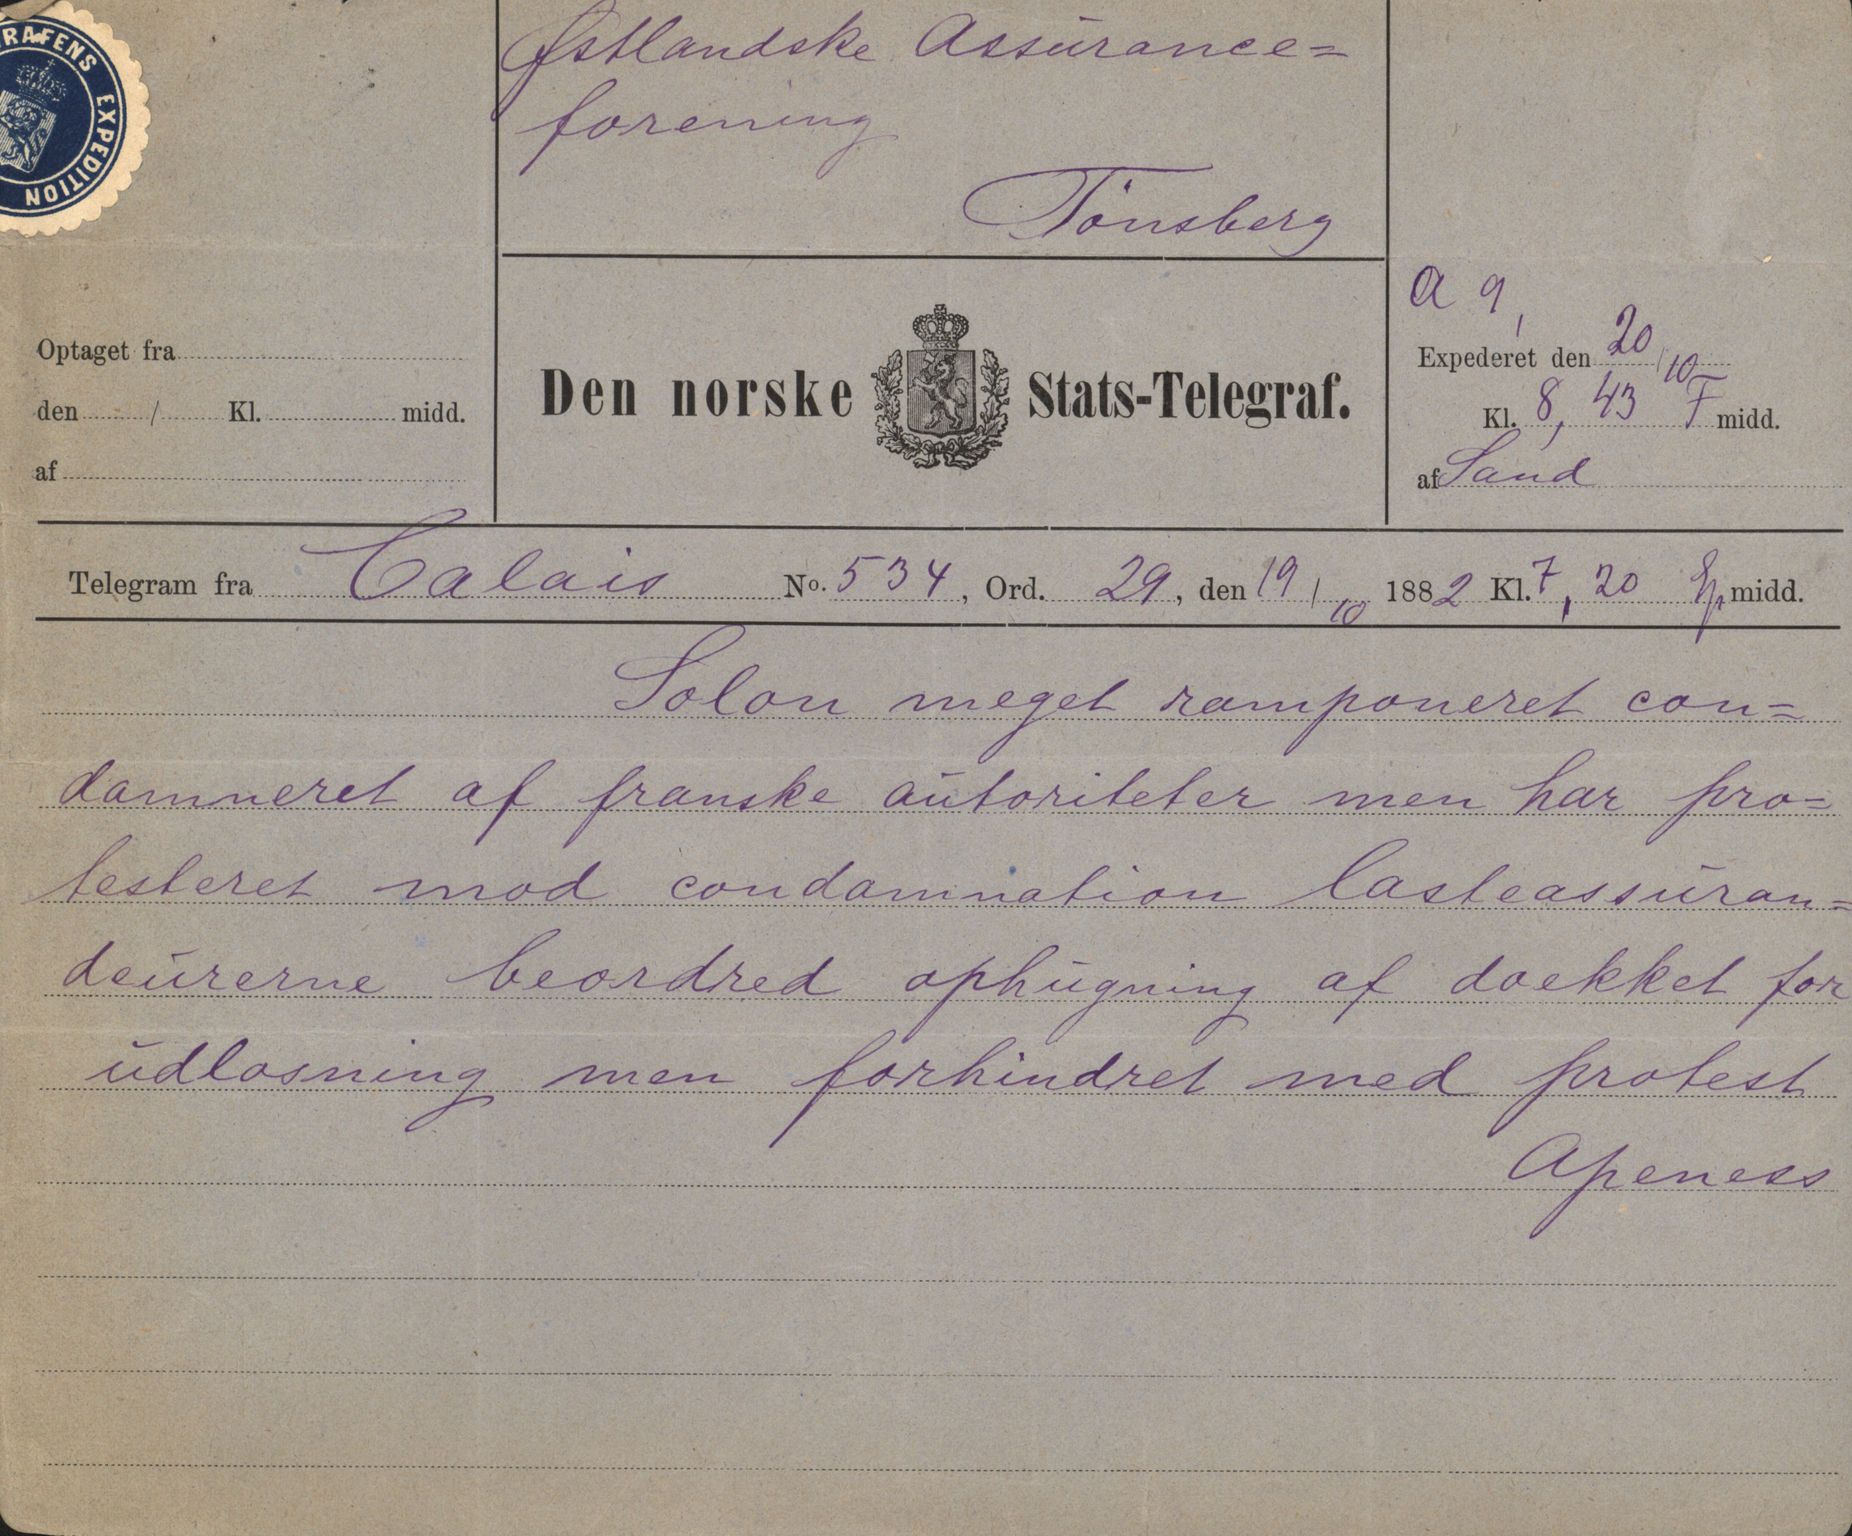 RAFENS EXPEDITION
Østlandske Assürance=
forening
Tönsberg
Optaget fra
den / Kl. midd.
af
Den norske Stats-Telegraf.
a 9,
Expederet den 20/10
Kl. 8,43 F midd.
af Sand
Telegram fra Calais No. 534, Ord. 29, den 19/10 1882 Kl. 7,20 Ep midd.
Solon meget ramponeret con=
damneret af franske aütoriteter men har pro=
testeret mod condamnation lasteassüran=
deürerne beordred ophügning af doekket for
üdlosning men forhindret med protest
Apeness